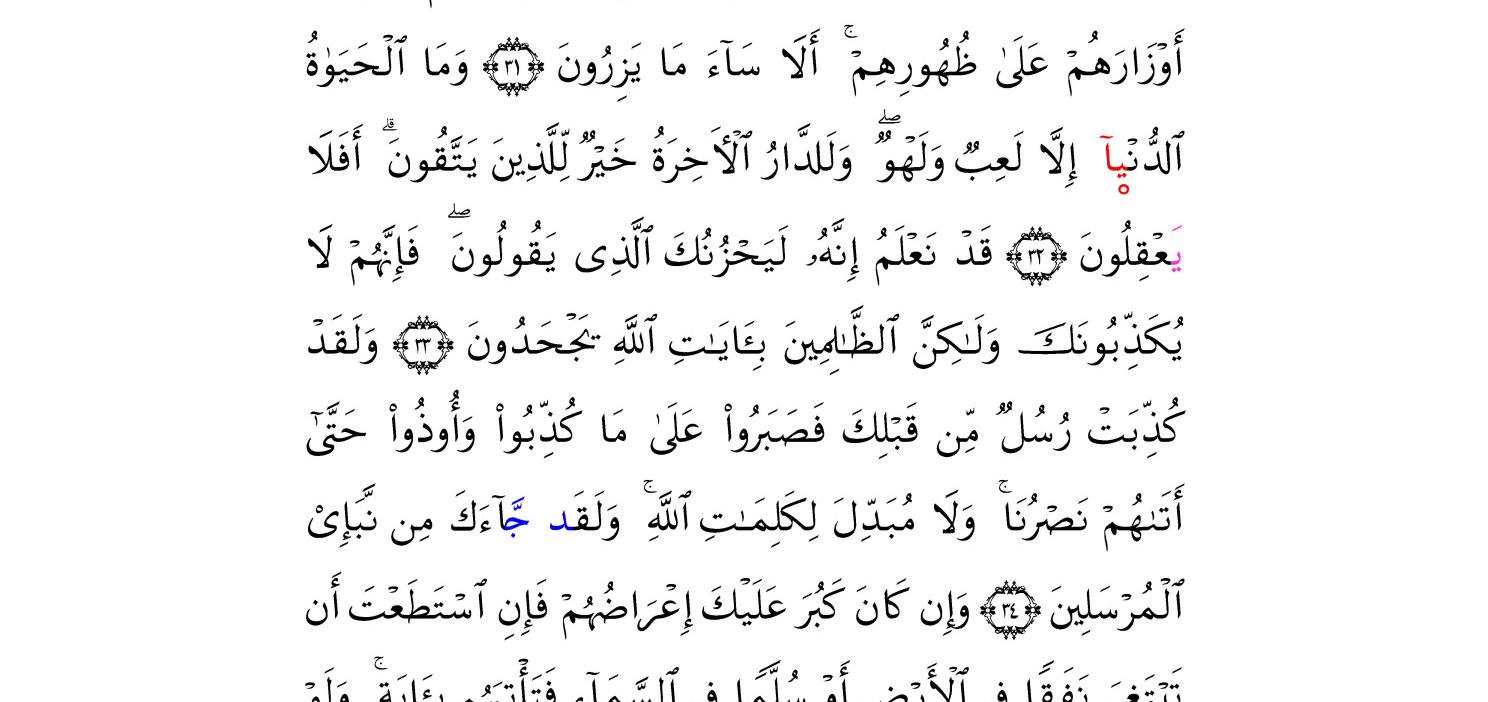 أَوۡزَارَهُمۡ عَلَىٰ ظُهُورِهِمۡۚ أَلَا سَآءَ مَا يَزِرُونَ ﴿٣١﴾ وَمَا ٱلۡحَيَوٰةُ
ٱلدُّنۡيَآ إِلَّا لَعِبٞ وَلَهۡوٞۖ وَلَلدَّارُ ٱلۡأٓخِرَةُ خَيۡرٞ لِّلَّذِينَ يَتَّقُونَۗ أَفَلَا
يَعۡقِلُونَ ﴿٣٢﴾ قَدۡ نَعۡلَمُ إِنَّهُۥ لَيَحۡزُنُكَ ٱلَّذِى يَقُولُونَۖ فَإِنَّهُمۡ لَا
يُكَذِّبُونَكَ وَلَٰكِنَّ ٱلظَّٰلِمِينَ بِـَٔايَٰتِ ٱللَّهِ يَجۡحَدُونَ ﴿٣٣﴾ وَلَقَدۡ
كُذِّبَتۡ رُسُلٞ مِّن قَبۡلِكَ فَصَبَرُواْ عَلَىٰ مَا كُذِّبُواْ وَأُوذُواْ حَتَّىٰٓ
أَتَىٰهُمۡ نَصۡرُنَاۚ وَلَا مُبَدِّلَ لِكَلِمَٰتِ ٱللَّهِۚ وَلَقَد جَّآءَكَ مِن نَّبَإِىْ
ٱلۡمُرۡسَلِينَ ﴿٣٤﴾ وَإِن كَانَ كَبُرَ عَلَيۡكَ إِعۡرَاضُهُمۡ فَإِنِ ٱسۡتَطَعۡتَ أَن
تَبۡتَغِىَ نَفَقٗا فِى ٱلۡأَرۡضِ أَوۡ سُلَّمٗا فِى ٱلسَّمَآءِ فَتَأۡتِيَهُم بِـَٔايَةٖۚ وَلَوۡ